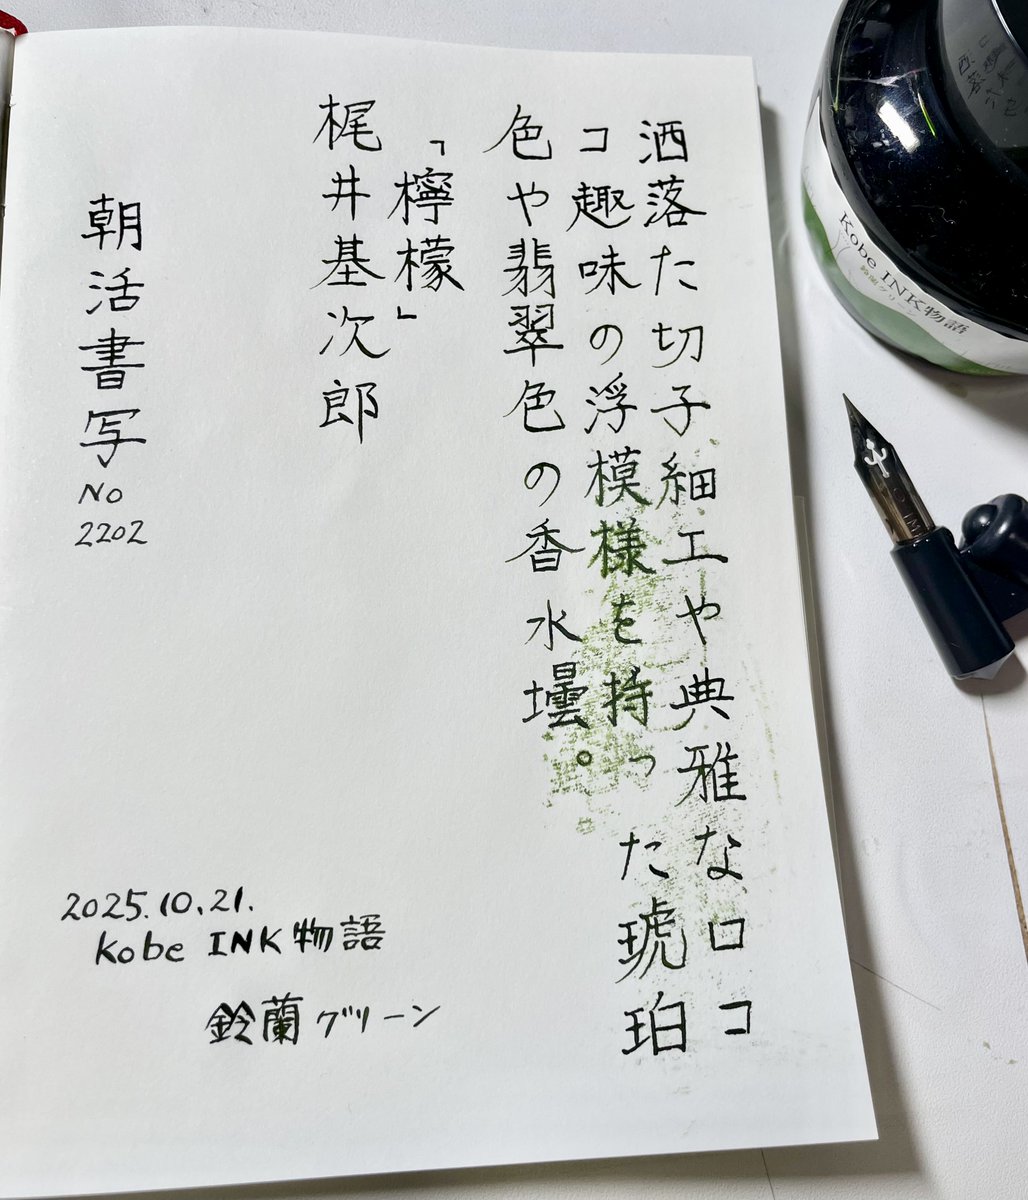 洒落た切子細工や典雅なロココ
コ趣味の浮模様を持った琥珀
色や翡翠色の香水壜。
「檸檬」
梶井基次郎
朝活書写No
2202
2025.10.21.
Kobe INK物語
鈴蘭グリーン
Kobe INK物語
鈴蘭グリーン